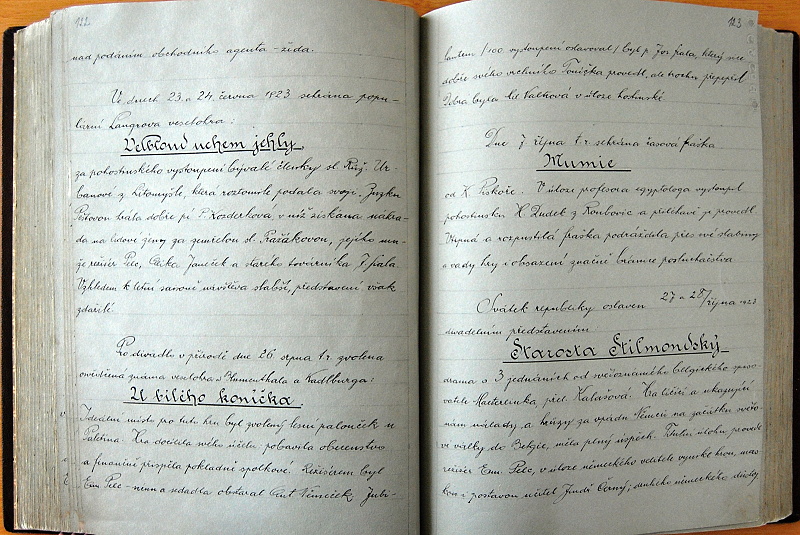 122
nad podáním obchodního agenta - žida.
Ve dnech 23. a 24. června 1923 sehrána popu-
lární Langrova veselohra:
Velbloud uchem jehly,
za pohostinského vystoupení bývalé členky sl. Růž. Ur-
banové z Litomyšle, která roztomile podala svoji Zuzku
Peštovou hrála dobře pí P. Kozderková, v níž získána náhra-
da na lidové ženy za zemřelou sl. Pražákovou, jejího mu-
že režisér Pelc, Alíka Janeček a starého továrníka J. Fiala.
Vzhledem k letní saisoně návštěva slabší, představení však
zdařilé.
Pro divadlo v přírodě dne 26. srpna t. r. zvolena
osvědčená známá veselohra Blumenthala a Kadlburga:
U bílého koníčka.
Ideální místo pro tuto hru byl zvolený lesní palouček u
Paletína. Hra docílila svého účelu, pobavila obecenstvo
a finančně přispěla pokladně spolkové. Režisérem byl
Em. Pelc - nenu a sedadla obstaral Ant. Němeček. Jubi-
123
lantem /100 vystoupení oslavoval/ byl p. Jos. Fiala, který vše
dobře svého vrchního Tonička provedl, ale trochu přepepřil
Dobrá byla též Vaňková v úloze hostinské.
Dne 7. října t. r. sehrána časová fraška
Mumie
od K. Piskoře. V úloze profesora egyptologa vystoupil
pohostinsku H. Ludek z Roubovic a přiléhavě ji provedl.
Vtipná a rozpustilá fraška podráždila přes své slabiny
a vady hry i obsazení značně bránice posluchačstva
Svátek republiky oslaven 27. a 28/října 1923
divadelním představením
Starosta Stilmondský
drama o 3 jednáních od světoznámého belgického spiso-
vatele Maeterlinka, přel. Kalašová. Hra líčící a ukazující
nám nálady a hrůzy za vpádu Němců na začátku světo-
vé války do Belgie, měla plný úspěch. Titulní úlohu provedl
režisér Em. Pelc, v úloze německého velitele vynikl hrou, mas-
kou i postavou učitel Jindř. Černý; druhého německého důstoj-